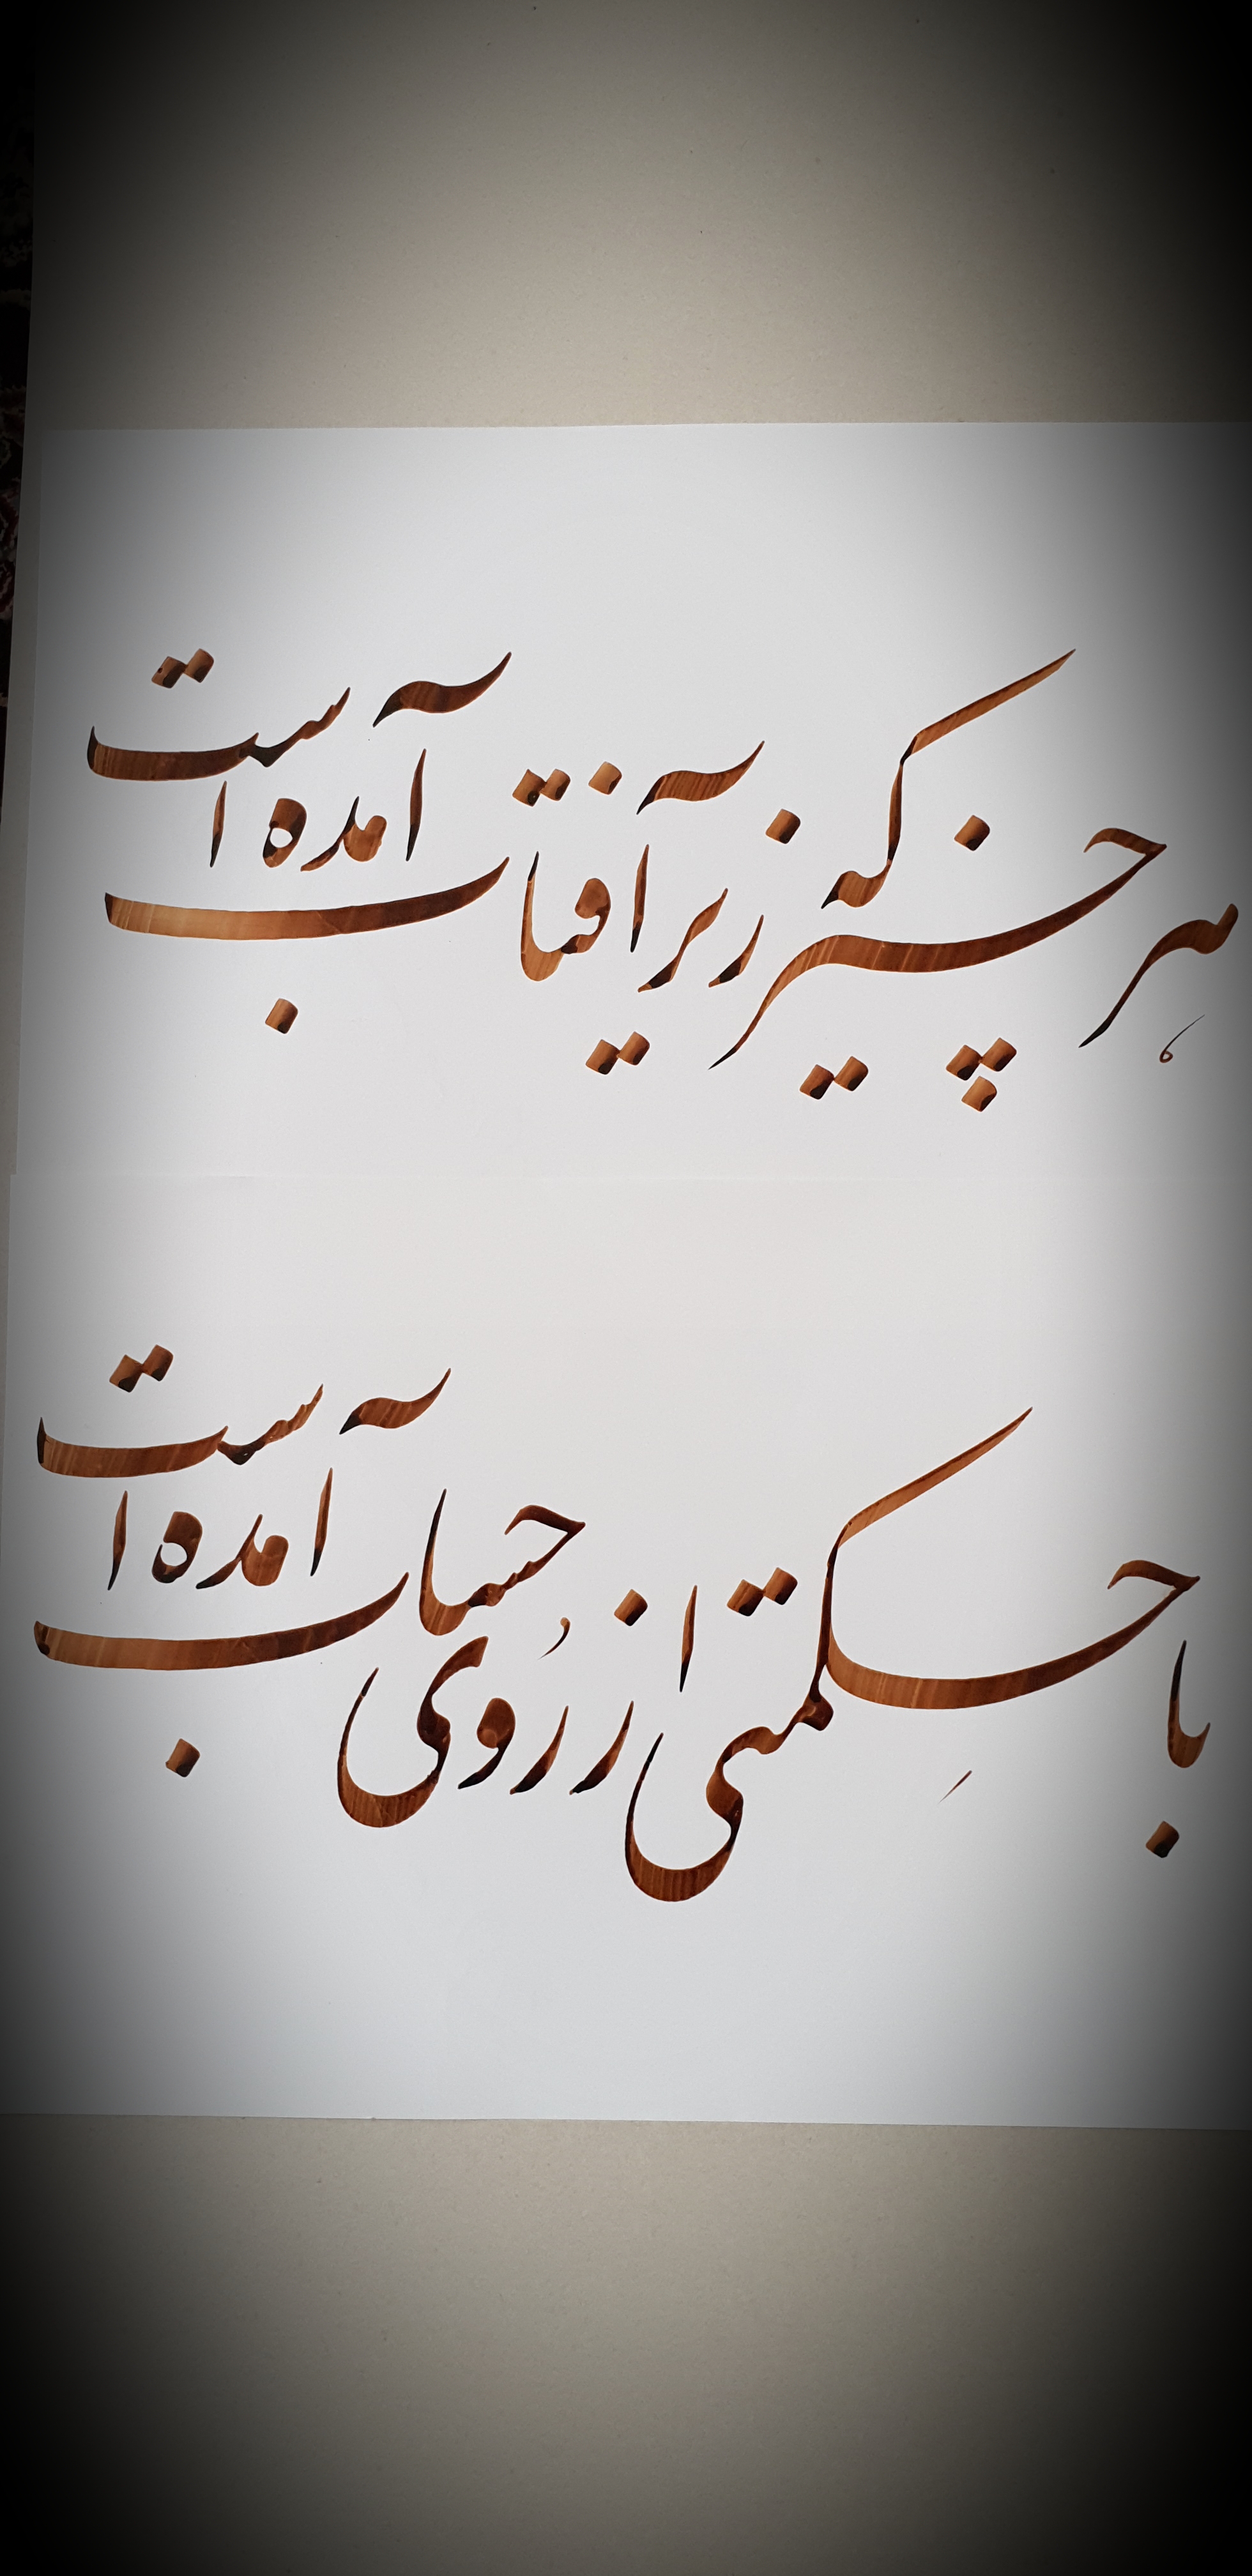 هر چیز که زیر آفتاب آمده است
با حکمتی از روی حساب آمده است